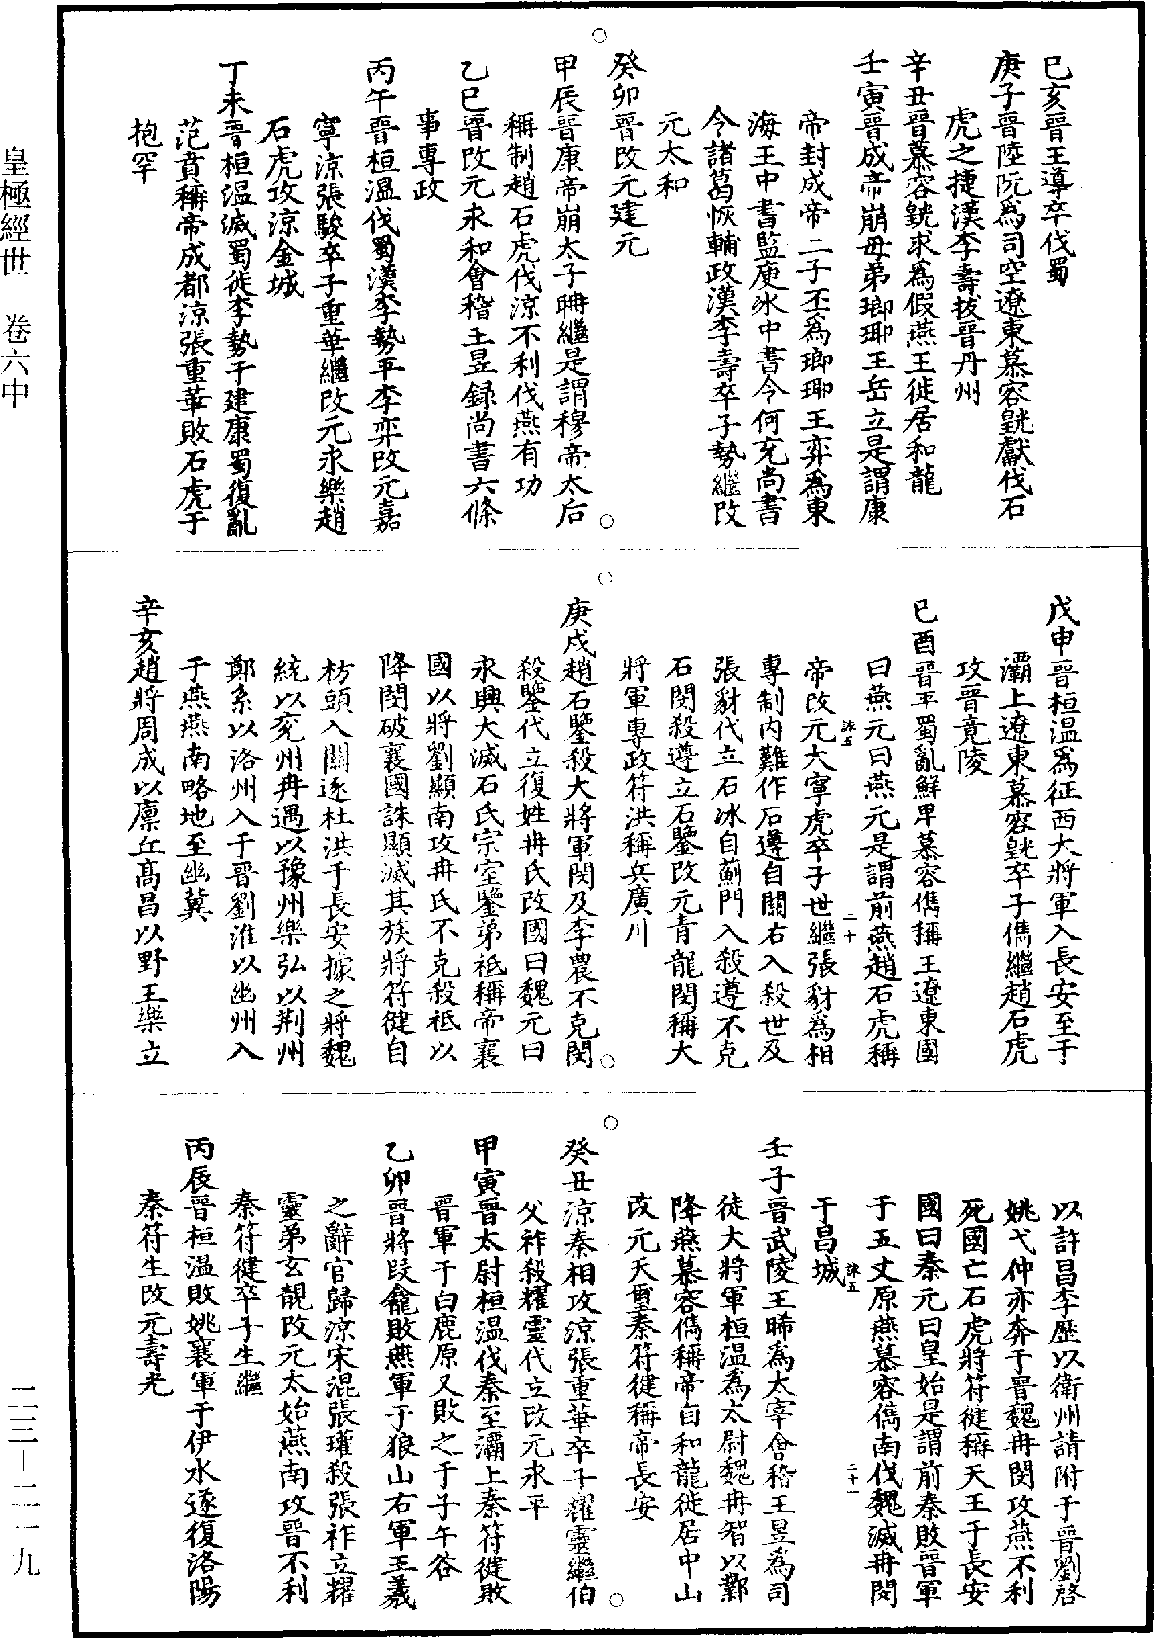 己亥晉王導卒伐蜀
庚子晉陸阮爲司空遼東慕容皝獻伐石
虎之捷漢李壽拔晉丹州
辛丑晉慕容皝求爲假燕王徙居和龍
壬寅晉成帝崩母弟瑯琊王岳立是謂康
帝封成帝二子丕爲瑯琊王弈爲東
海王中書監庾冰中書令何充尚書
令諸葛恢輔政漢李壽卒子勢繼改
元太和
癸卯晉改元建元
甲辰晉康帝崩太子聃繼是謂穆帝太后
稱制趙石虎伐涼不利伐燕有功
乙巳晉改元永和會稽王昱録尚書六條
事專政
丙午晉桓溫伐蜀漢李勢平李弈改元嘉
寧涼張駿卒子重華繼改元永樂趙
石虎攻涼金城
丁未晉桓溫滅蜀徙李勢于建康蜀復亂
范賁稱帝成都涼張重華敗石虎于
枹罕
戊申晉桓溫爲征西大將軍入長安至于
灞上遼東慕容皝卒子儁繼趙石虎
攻晉竟陵
己酉晉平蜀亂鮮卑慕容儁稱王遼東國
曰燕元曰燕元是謂前燕趙石虎稱
帝改元大寧虎卒子世繼張豺爲相
專制內難作石遵自關右入殺世及
張豺代立石冰自薊門入殺遵不克
石閔殺遵立石鑒改元青龍閔稱大
將軍專政苻洪稱兵廣川
庚戌趙石鑒殺大將軍閔及李農不克閔
殺鑒代立復姓冉氏改國曰魏元曰
永興大滅石氏宗室鑒弟祗稱帝襄
國以將劉顯南攻冉氏不克殺祗以
降閔破襄國誅顯滅其族將苻健自
枋頭入關逐杜洪于長安據之將魏
統以兗州冉遇以豫州樂弘以荆州
鄭系以洛州入于晉劉淮以幽州入
于燕燕南略地至幽冀
辛亥趙將周成以廪丘高昌以野王樂立
以許昌李歷以衛州請附于晉劉啓
姚弋仲亦奔于晉魏冉閔攻燕不利
死國亡石虎將苻健稱天王于長安
國曰秦元曰皇始是謂前秦敗晉軍
于五丈原燕慕容儁南伐魏滅冉閔
于昌城
壬子晉武陵王晞爲太宰會稽王昱爲司
徒大將軍桓溫爲太尉魏冉智以鄴
降燕慕容儁稱帝自和龍徙居中山
改元天璽秦苻健稱帝長安
癸丑涼秦相攻涼張重華卒子耀靈繼伯
父祚殺耀靈代立改元永平
甲寅晉太尉桓溫伐秦至灞上秦苻健敗
晉軍于白鹿原又敗之于子午谷
乙卯晉將段龕敗燕軍于狼山右軍王羲
之辭官歸涼宋混張瓘殺張祚立耀
靈弟玄靚改元太始燕南攻晉不利
秦苻健卒子生繼
丙辰晉桓溫敗姚襄軍于伊水遂復洛陽
秦苻生改元壽光
誅五
二十
誅五
二十一
皇極經世 卷六中
二三－二一九